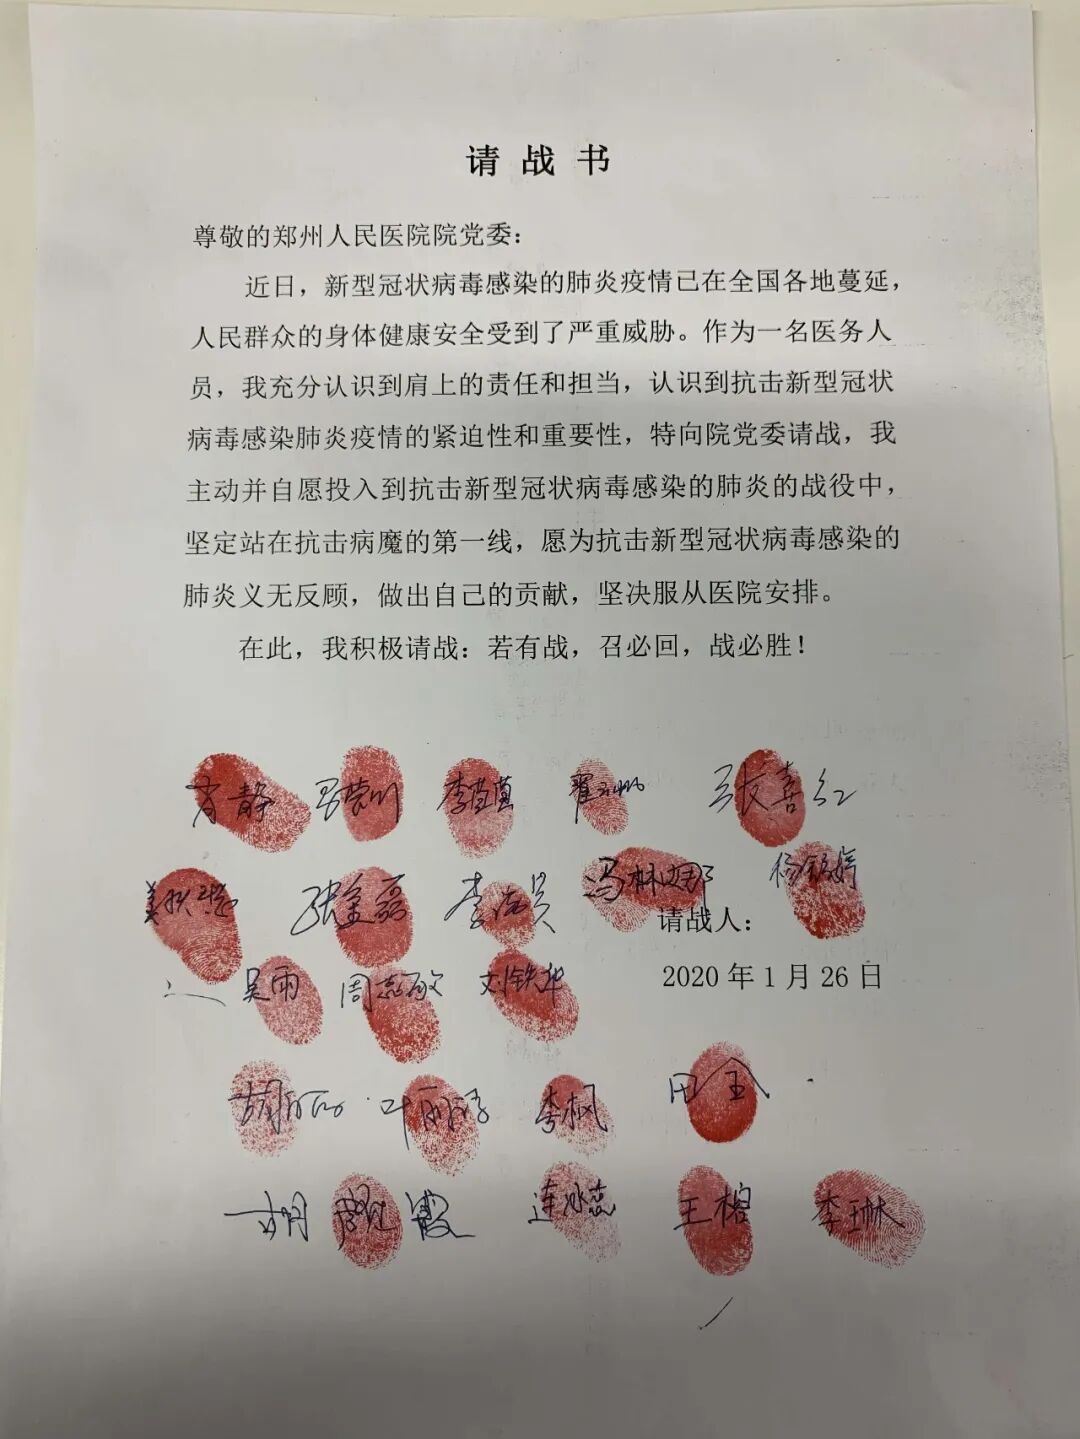 请战书
尊敬的郑州人民医院院党委：
近日，新型冠状病毒感染的肺炎疫情已在全国各地蔓延，
人民群众的身体健康安全受到了严重威胁。作为一名医务人
员，我充分认识到肩上的责任和担当，认识到抗击新型冠状
病毒感染肺炎疫情的紧迫性和重要性，特向院党委请战，我
主动并自愿投入到抗击新型冠状病毒感染的肺炎的战役中，
坚定站在抗击病魔的第一线，愿为抗击新型冠状病毒感染的
肺炎义无反顾，做出自己的贡献，坚决服从医院安排。
在此，我积极请战：若有战，召必回，战必胜！
张喜红
张金磊 冯林娜
请战人：
吴雨 周志敏 刘铁华
2020 年 1 月 26 日
李枫 田金
连冰蕊 王榕 李琳